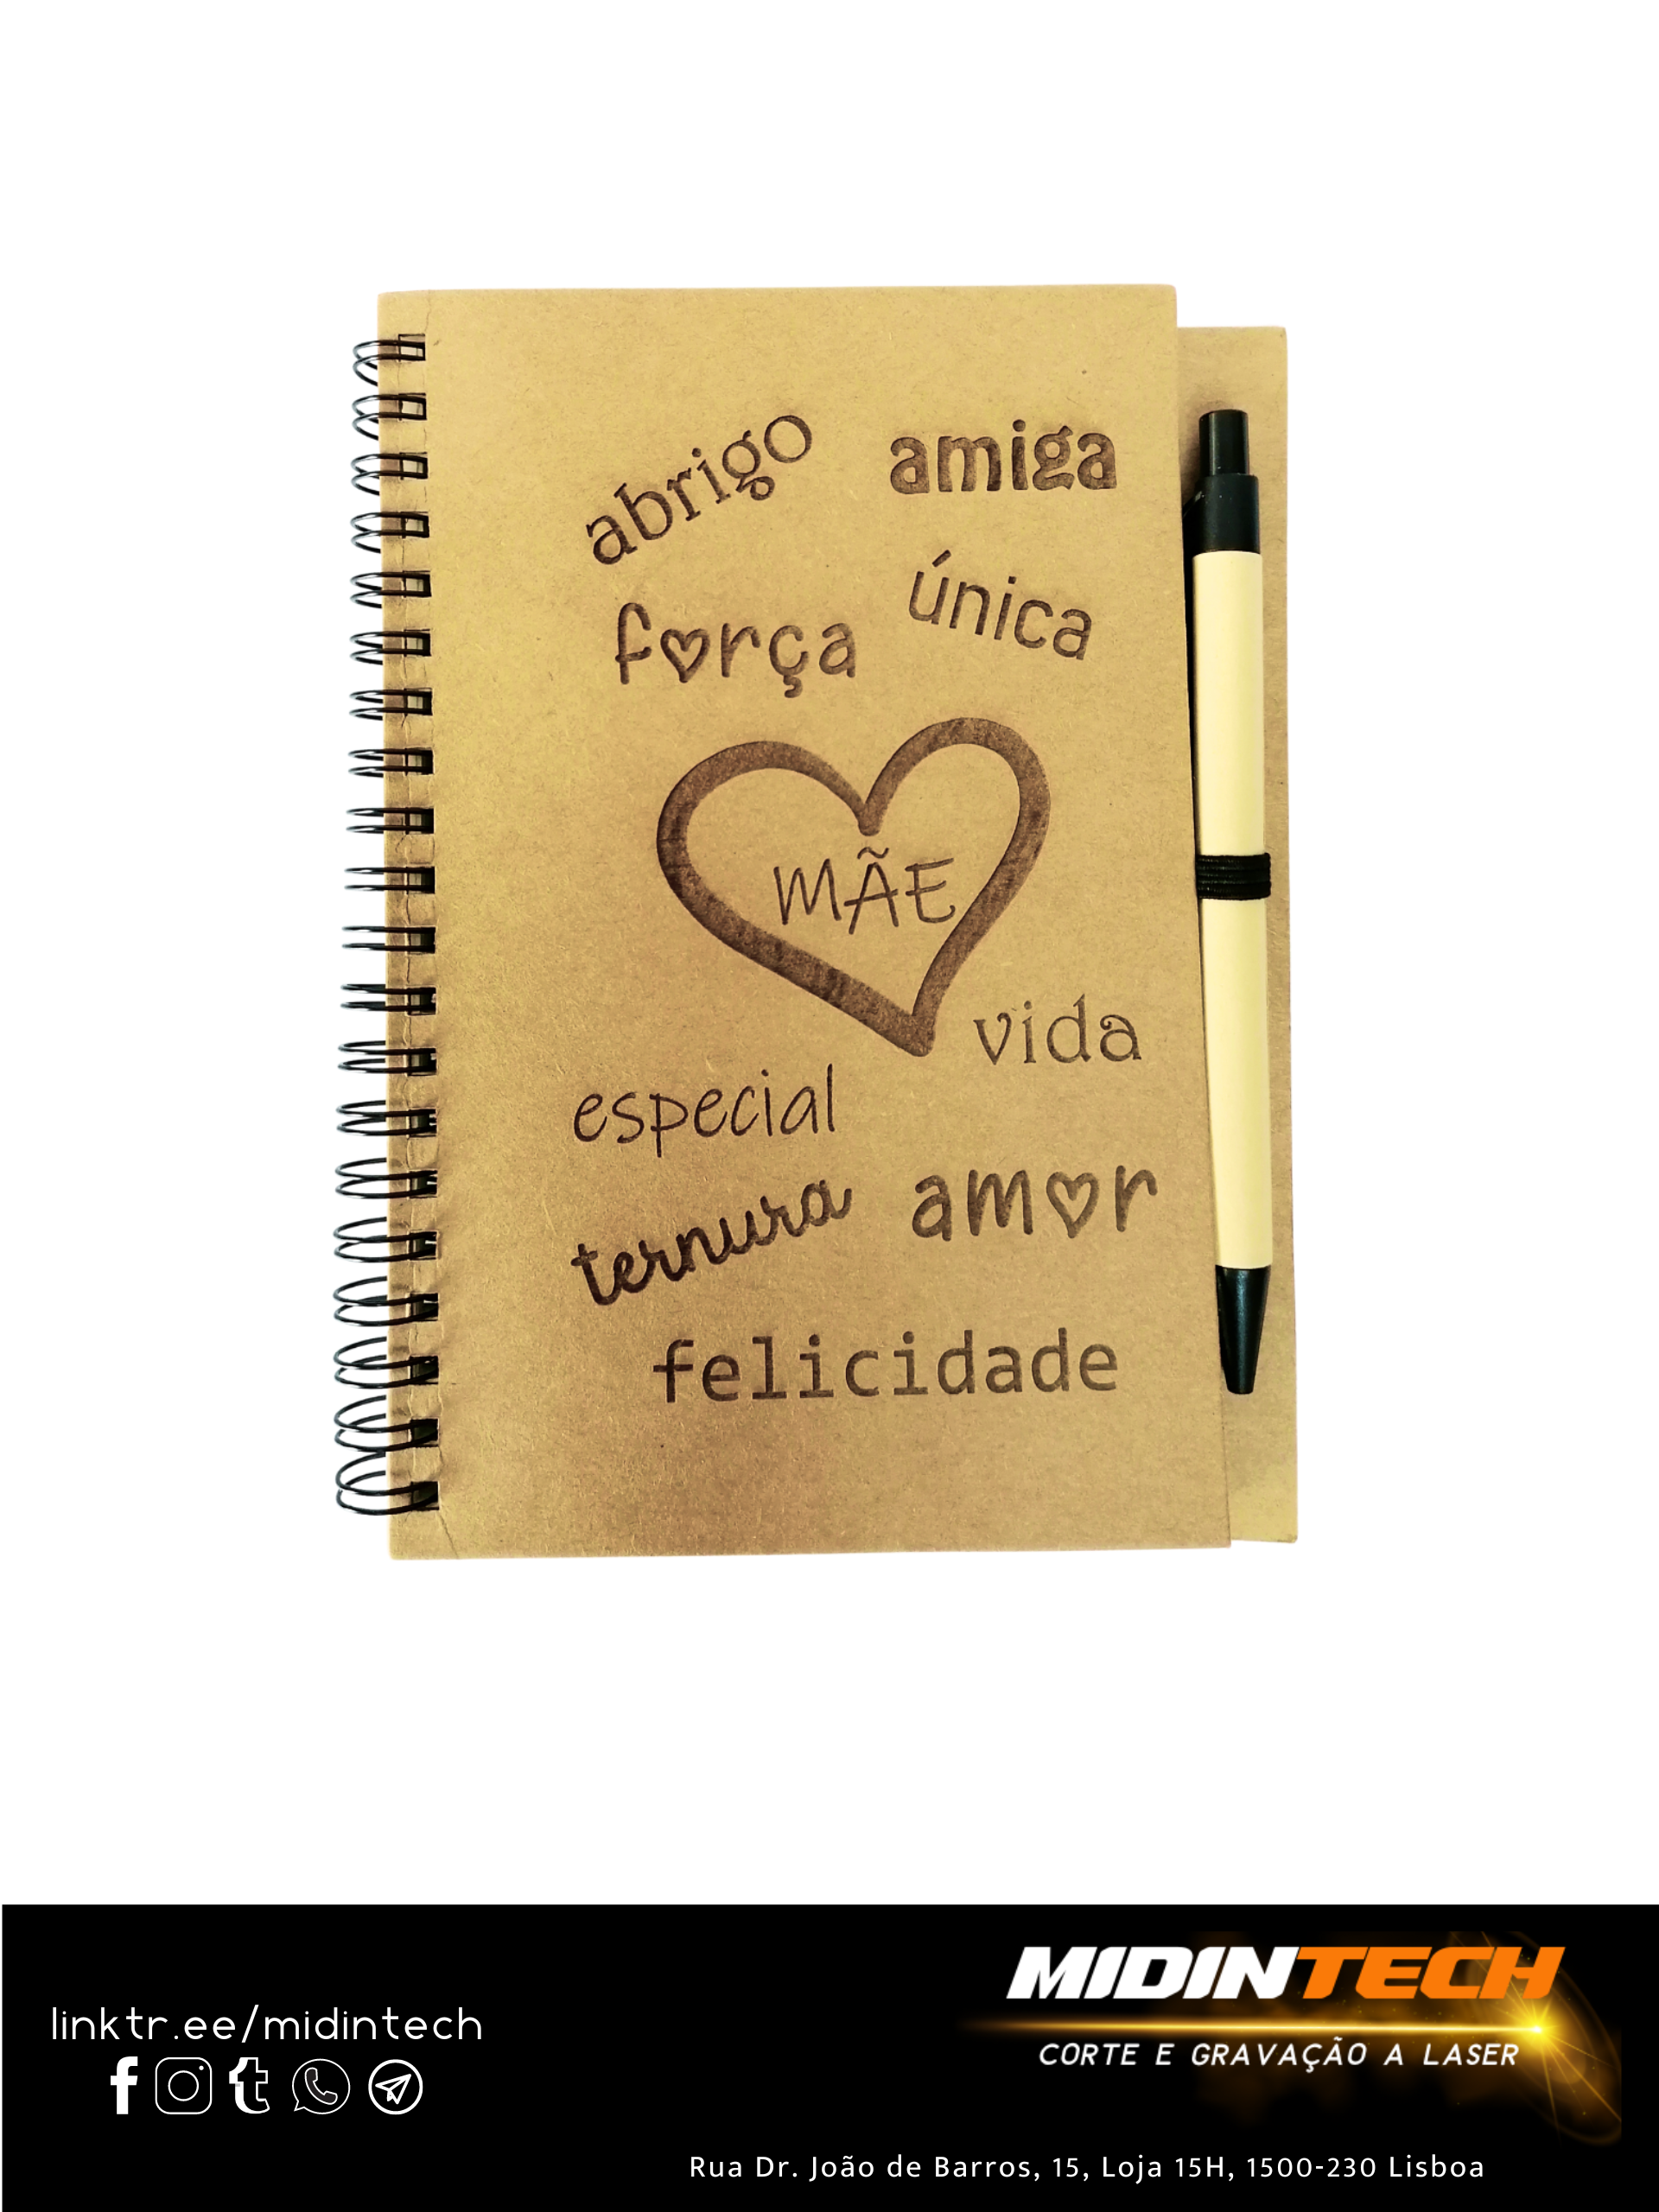 abrigo
amiga
única
força
MÃE
vida
especial
ternura
amor
felicidade
linktr.ee/midintech
MIDINTECH
CORTE E GRAVAÇÃO A LASER
Rua Dr. João de Barros, 15, Loja 15H, 1500-230 Lisboa